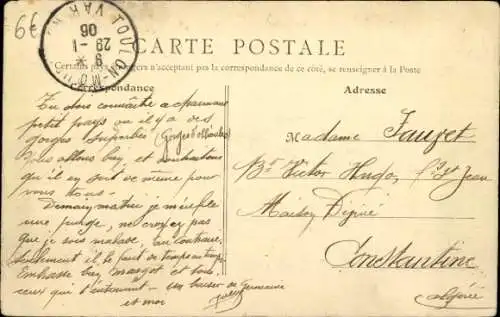 6€
TOULON-MO VAR
9 *
29 - 1
06
CARTE POSTALE
Certains pays étrangers n'acceptant pas la correspondance de ce côté, se renseigner à la Poste
Correspondance
Adresse
Tu dois connaître ce charmant
petit pays où il y a des
gorges superbes (Gorges d'Ollioules)
Nous allons bien et souhaitons
qu'il en soit de même pour
vous tous -
Demain matin je m'enfile
une purge, ne croyez pas
que je sois malade, au contraire,
seulement il le faut de temps en temps.
Embrasse bien Margot et tous
ceux qui t'entourent - un baiser de Germaine
et moi
Madame Fauzet
Bd Victor Hugo, fg St Jean
Maison
Constantine
Algérie